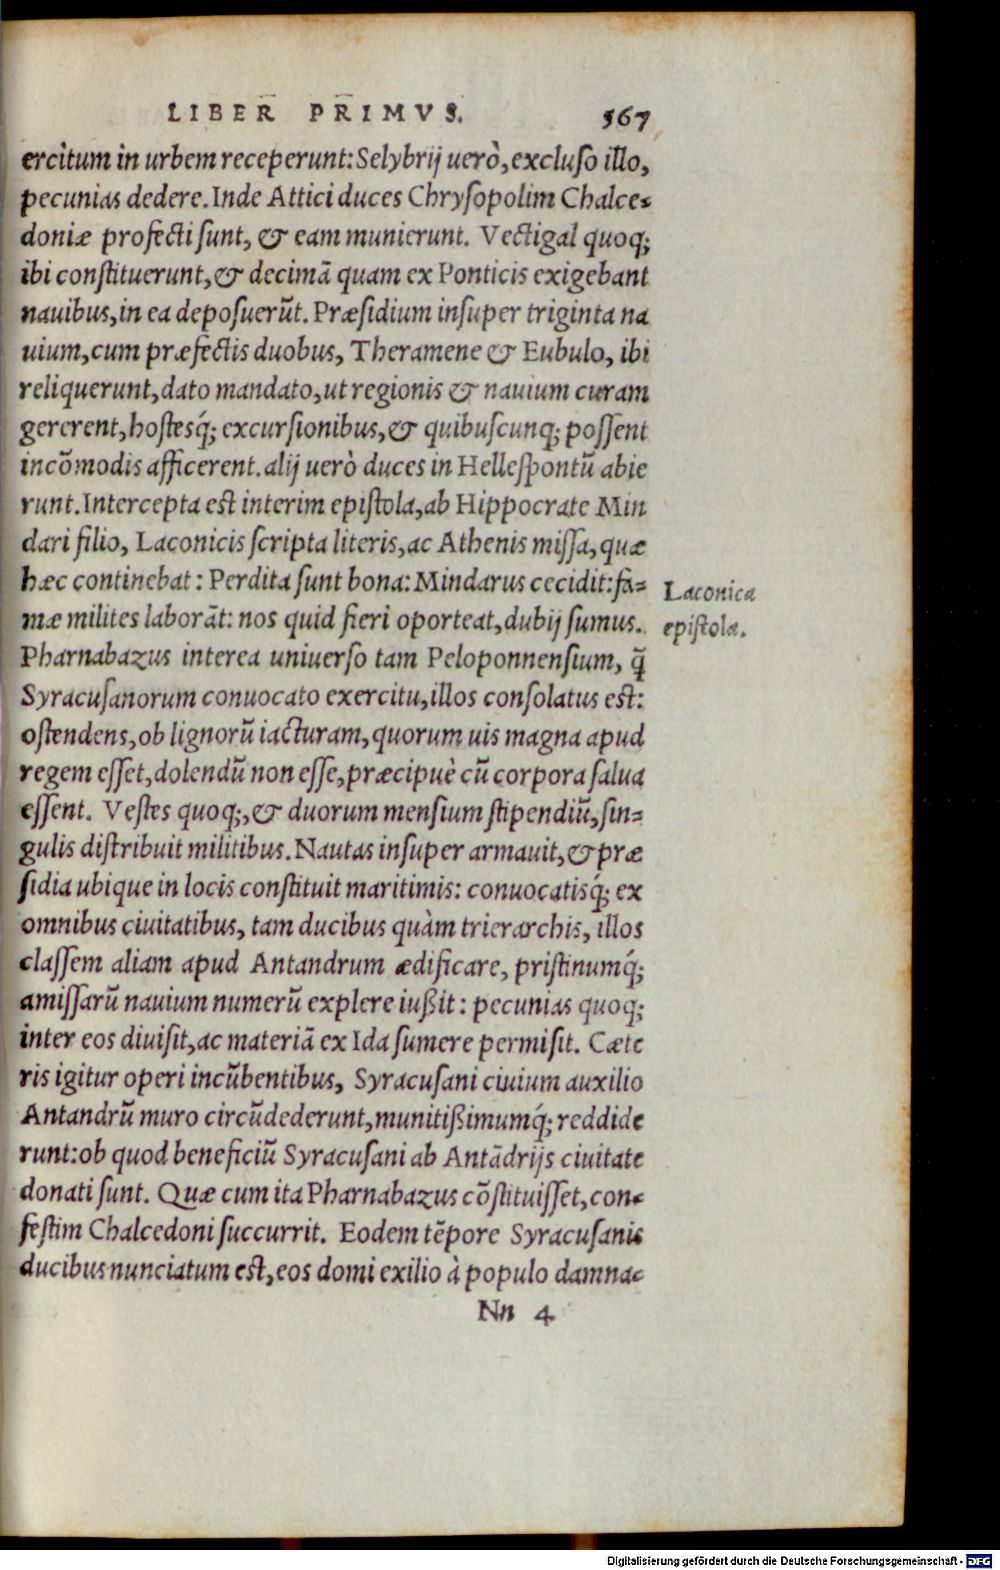 LIBER PRIMVS. 567
ercitum in urbem receperunt: Selybrij uerò, excluso illo,
pecunias dedere. Inde Attici duces Chrysopolim Chalce-
doniæ profecti sunt, & eam munierunt. Vectigal quoq;
ibi constituerunt, & decimā quam ex Ponticis exigebant
nauibus, in ea deposuerūt. Præsidium insuper triginta na
uium, cum præfectis duobus, Theramene & Eubulo, ibi
reliquerunt, dato mandato, ut regionis & nauium curam
gererent, hostesq́; excursionibus, & quibuscunq; possent
incōmodis afficerent. alij uerò duces in Hellespontū abie
runt. Intercepta est interim epistola, ab Hippocrate Min
dari filio, Laconicis scripta literis, ac Athenis missa, quæ
hæc continebat: Perdita sunt bona: Mindarus cecidit: fa-
mæ milites laborāt: nos quid fieri oporteat, dubij sumus.
Laconica
epistola.
Pharnabazus interea uniuerso tam Peloponnensium, q̄
Syracusanorum conuocato exercitu, illos consolatus est:
ostendens, ob lignorū iacturam, quorum uis magna apud
regem esset, dolendū non esse, præcipuè cū corpora salua
essent. Vestes quoq;, & duorum mensium stipendiū, sin-
gulis distribuit militibus. Nautas insuper armauit, & præ
sidia ubique in locis constituit maritimis: conuocatisq́; ex
omnibus ciuitatibus, tam ducibus quàm trierarchis, illos
classem aliam apud Antandrum ædificare, pristinumq́;
amissarū nauium numerū explere iußit: pecunias quoq;
inter eos diuisit, ac materiā ex Ida sumere permisit. Cæte
ris igitur operi incūbentibus, Syracusani ciuium auxilio
Antandrū muro circūdederunt, munitißimumq́; reddide
runt: ob quod beneficiū Syracusani ab Antādrijs ciuitate
donati sunt. Quæ cum ita Pharnabazus cōstituisset, con-
festim Chalcedoni succurrit. Eodem tēpore Syracusanis
ducibus nunciatum est, eos domi exilio à populo damna-
Nn 4
Digitalisierung gefördert durch die Deutsche Forschungsgemeinschaft - DFG